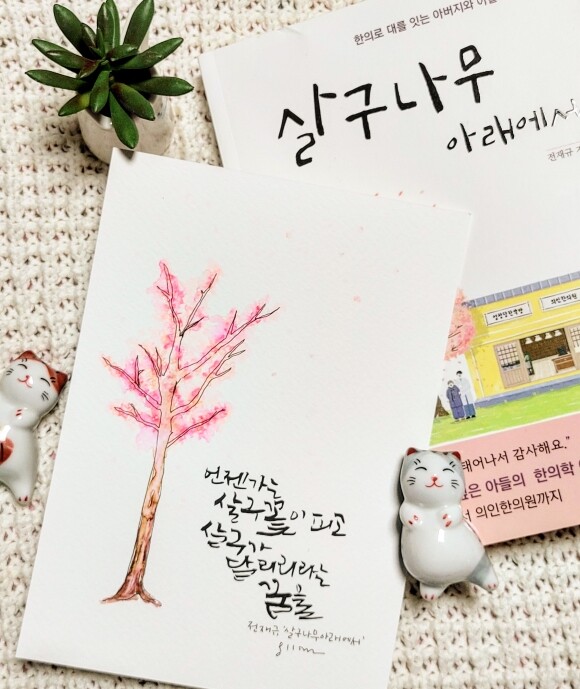 한의로 대를 잇는 아버지와 아들
살구나무
아래에서
전재규
의인한의원
태어나서 감사해요."
은 아들의 한의학
서 의인한의원까지
언젠가는
살구꽃이 피고
살구가
달리리라는
꿈을
전재규, '살구나무아래에서'